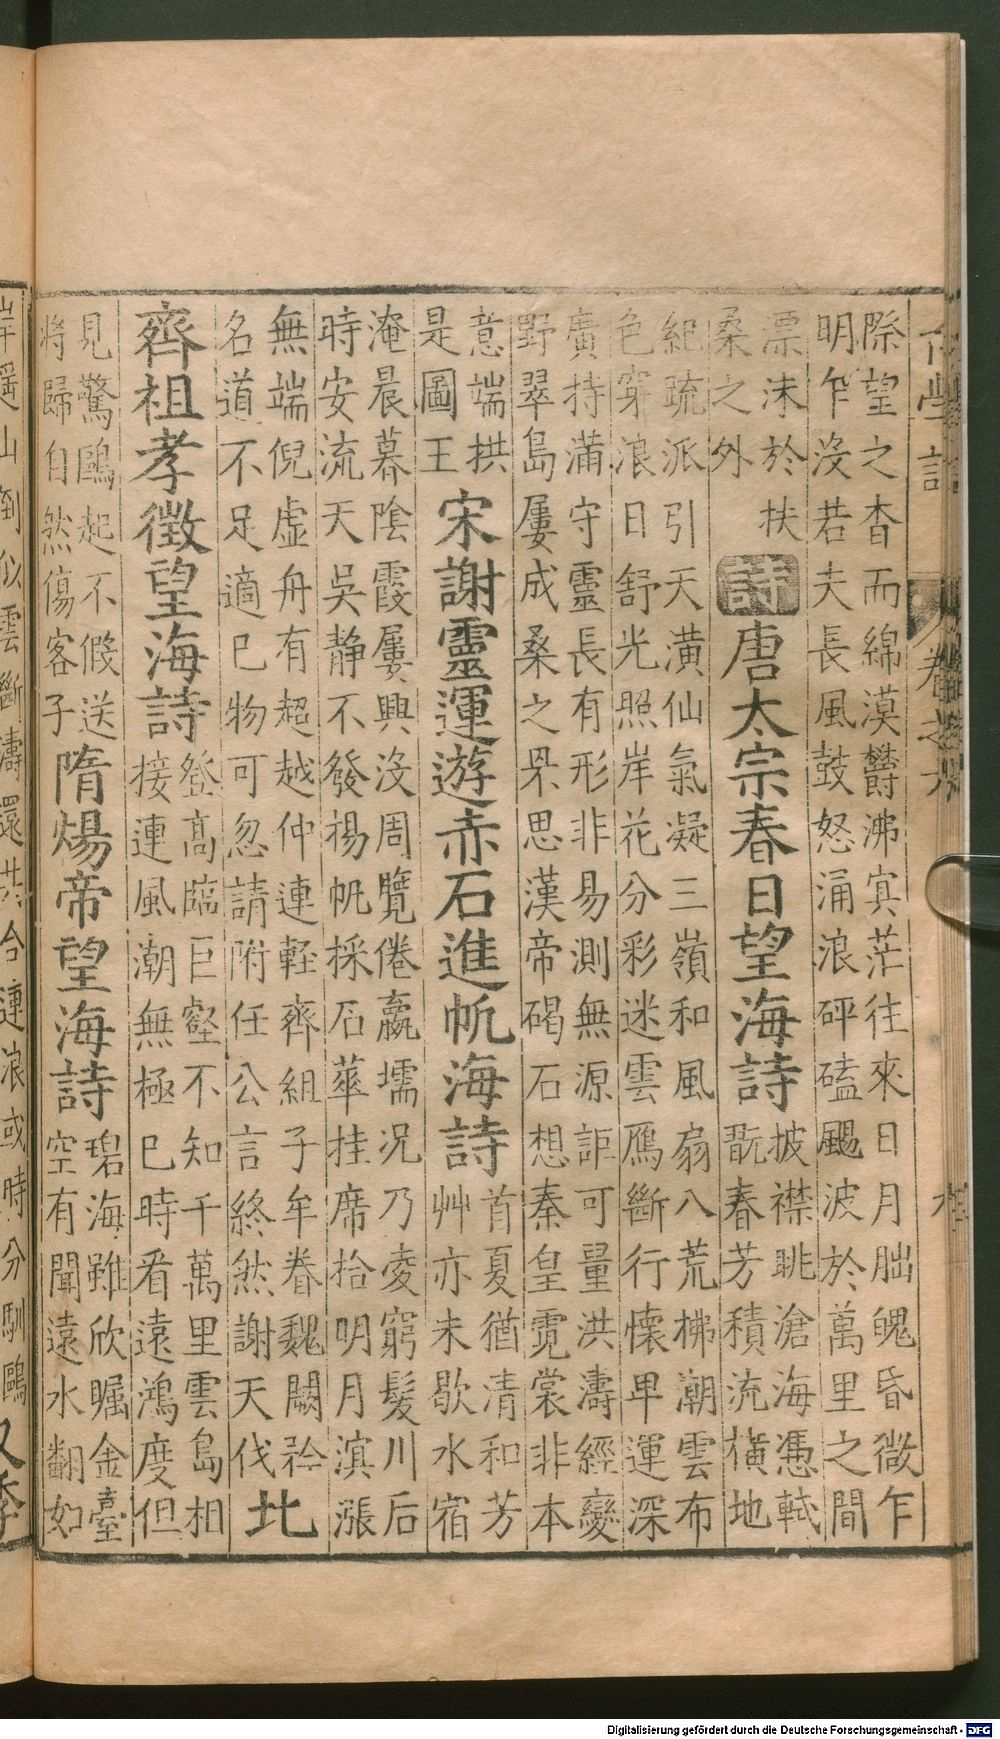 卷之六
際望之杳而綿漠欝沸㝠茫往來日月朏魄昏微乍
明乍没若夫長風鼓怒涌浪砰磕颺波於萬里之間
漂沫於扶
桑之外
詩
唐太宗春日望海詩
披襟眺滄海憑軾
翫春芳積流橫地
紀疏派引天潢仙氣凝三嶺和風扇八荒拂潮雲布
色穿浪日舒光照岸花分彩迷雲鴈斷行懷卑運深
廣持滿守靈長有形非易測無源詎可量洪濤經變
野翠島屢成桑之罘思漢帝碣石想秦皇霓裳非本
意端拱
是圖王
宋謝靈運遊赤石進帆海詩
首夏猶清和芳
艸亦未歇水宿
淹晨暮陰霞屢興没周覽倦瀛壖况乃凌窮髮川后
時安流天吳静不發揚帆採石華挂席拾明月溟漲
無端倪虚舟有超越仲連軽齊組子牟眷魏闕矜
名道不足適巳物可忽請附任公言終然謝天伐
北
齊祖孝徵望海詩
登高臨巨壑不知千萬里雲島相
接連風潮無極巳時看遠鴻度但
見驚鷗起不假送
將歸自然傷客子
隋煬帝望海詩
碧海雖欣矚金臺
空有聞遠水翻如
岸遥山倒似雲斷濤還共合連浪或時分馴鷗
又李
Digitalisierung gefördert durch die Deutsche Forschungsgemeinschaft - DFG